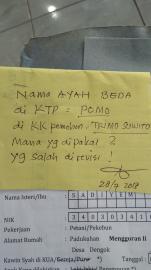 Nama AYAH BEDA
di KTP = POMO
di KK pemohon: TRIMO SUWITO
Mana yg dipakai ?
yg salah di revisi !
28/7 2018
Nama Isteri/Ibu : SADIYEM
NIK 340301
Pekerjaan : Petani/Pekebun
Alamat Rumah : Padukuhan Menggoran II
Desa Dengok
Kawin Syah di KUA/Gereja/Pura *) Tanggal :